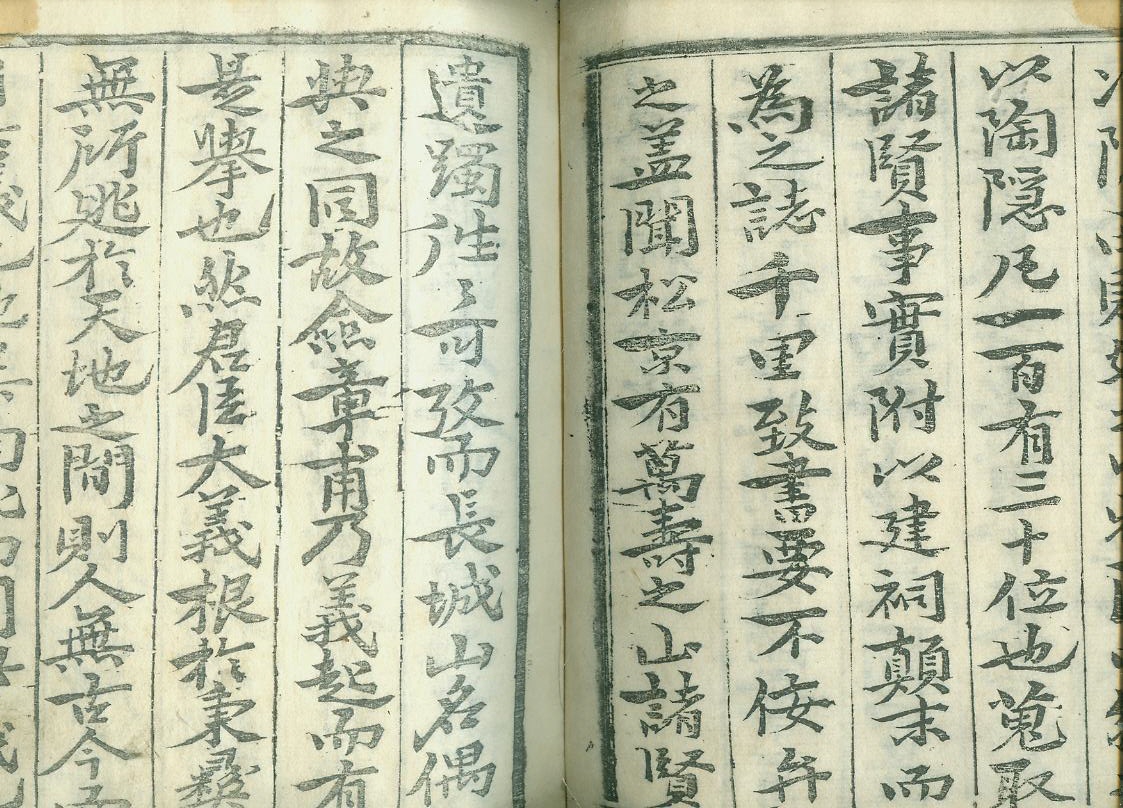 以陶隠凡一百有三十位也蒐取
諸賢事實附以建祠顛末而
為之誌千里致書要不佞弁
之盖聞松京有萬壽之山諸賢
遺躅徃〻可攷而長城山名偶
與之同故僉章甫乃義起而有
是擧也然君臣大義根於秉彛
無所逃於天地之間則人無古今